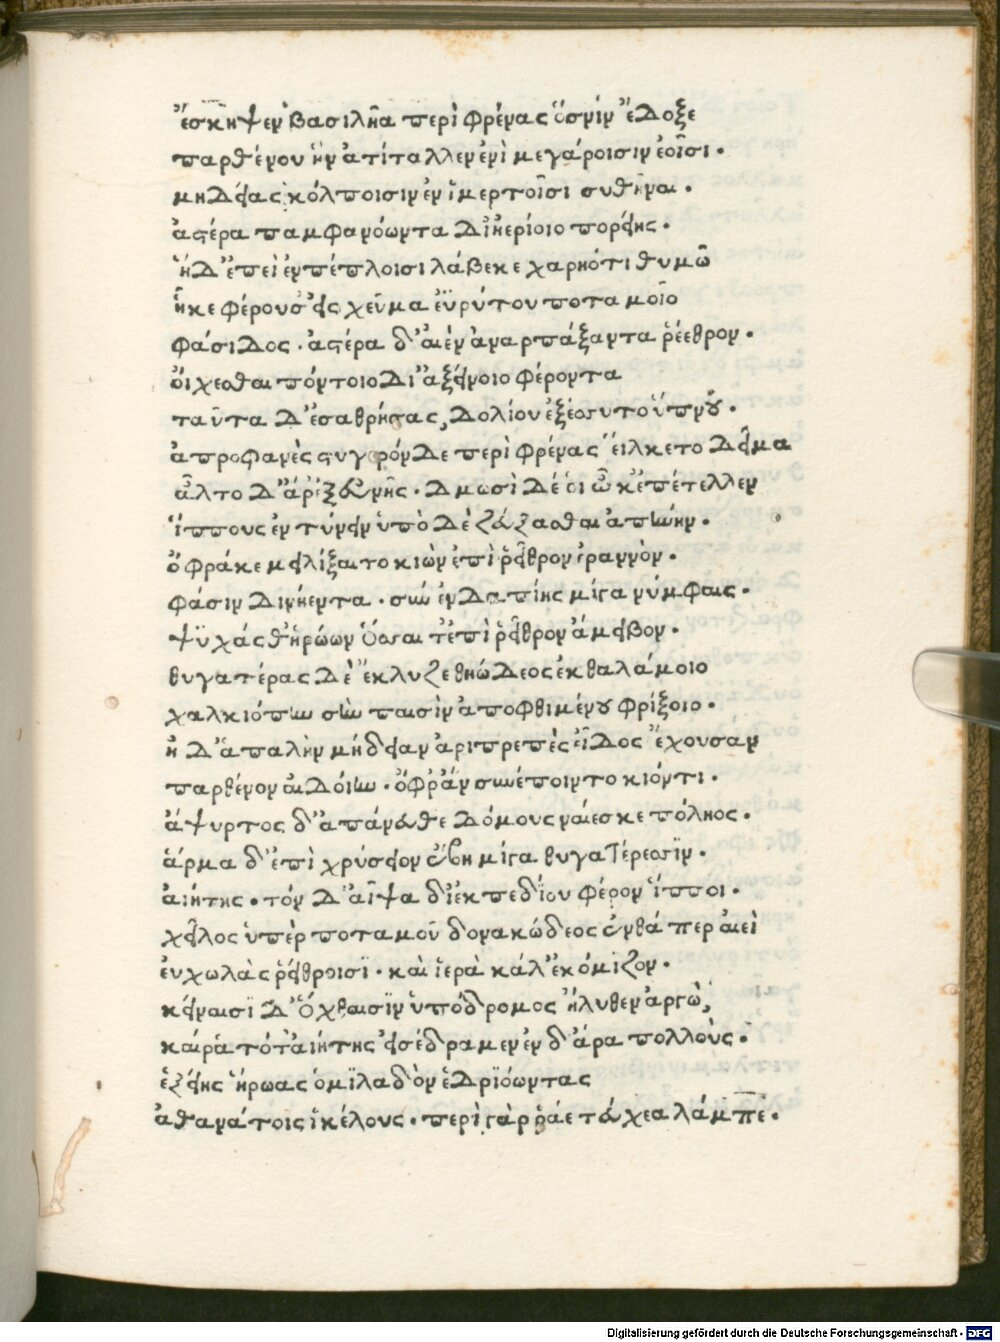 ἔσκηψεν βασιλῆα περὶ φρένας ὅσφιν ἔδοξε
παρθένου ἣν ἀτίταλλεν ἐνὶ μεγάροισιν ἑοῖσι.
μηδείας κόλποισιν ἐν ἱμερτοῖσι
ἀστέρα παμφανόωντα δι' ἠερίοιο πορείης.
ἡ δ' ἐπεὶ ἐν πέπλοισι λάβεκε χαρηότι θυμῶ
ἧκε φέρουσ' εἰς χεῦμα ἐϋρύτου ποταμοῖο
φάσιδος. ἀστέρα δ' αἰὲν ἀναρπάξαντα ῥέεθρον.
οἴχεσθαι πόντοιο δι' ἀξείνοιο φέροντα
ταῦτα δ' ἐσαθρήσας, δολίου ἐξέσσυτο ὕπνου.
ἀπροφανὲς στυγερόν δε περὶ φρένας εἵλκετο δεῖμα
ἆλτο δ' ἄρ' ἐξ εὐνῆς. δμωσὶ δέ οἱ ὦκ' ἐπέτελλεν
ἵππους ἐντύνειν ὑπὸ δὲ ζεύξασθαι ἀπήνην.
ὄφρά κε μειλίξαιτο κιὼν ἐπὶ ῥεῖθρον ἐραννὸν.
φάσιν δινήεντα. σὺν ἐνδαπίης μίγα νύμφαις.
ψϋχάς θ' ἡρώων ὅσσαι τ' ἐπὶ ῥεῖθρον ἄμειβον.
θυγατέρας δὲ ἔκλυζε θηώδεος ἐκ θαλάμοιο
χαλκιόπην σὺν παισὶν ἀποφθιμένου φρίξοιο.
ἠδ' ἁπαλὴν μήδειαν ἀριπρεπὲς εἶδος ἔχουσαν
παρθένον αἰδοίην. ὄφρ' ἂν συνέποιντο κιόντι.
ἄψυρτος δ' ἀπάνευθε δόμους ναίεσκε πόληος.
ἅρμα δ' ἐπὶ χρύσειον ἔβη μίγα θυγατέρεσσϊν.
αἰήτης. τόν δ' αἶψα δϊὲκ πεδίου φέρον ἵπποι.
χεῖλος ὑπὲρ ποταμοῦ δονακώδεος ἔνθά περ αἰεὶ
εὐχωλὰς ῥείθροισϊ. καὶ ἱερὰ κάλ' ἐκόμιζον.
κείναισϊ δ' ὄχθαισϊν ὑπόδρομος ἤλυθεν ἀργὼ,
καί ῥα τότ' αἰήτης εἰσέδραμεν ἐν δ' ἄρα πολλοὺς.
ἑξείης ἥρωας ὁμϊλαδὸν ἑδρϊόωντας
ἀθανάτοις ἰκέλους. περὶ γὰρ ῥά ε τεύχεα λάμπε.
Digitalisierung gefördert durch die Deutsche Forschungsgemeinschaft - DFG